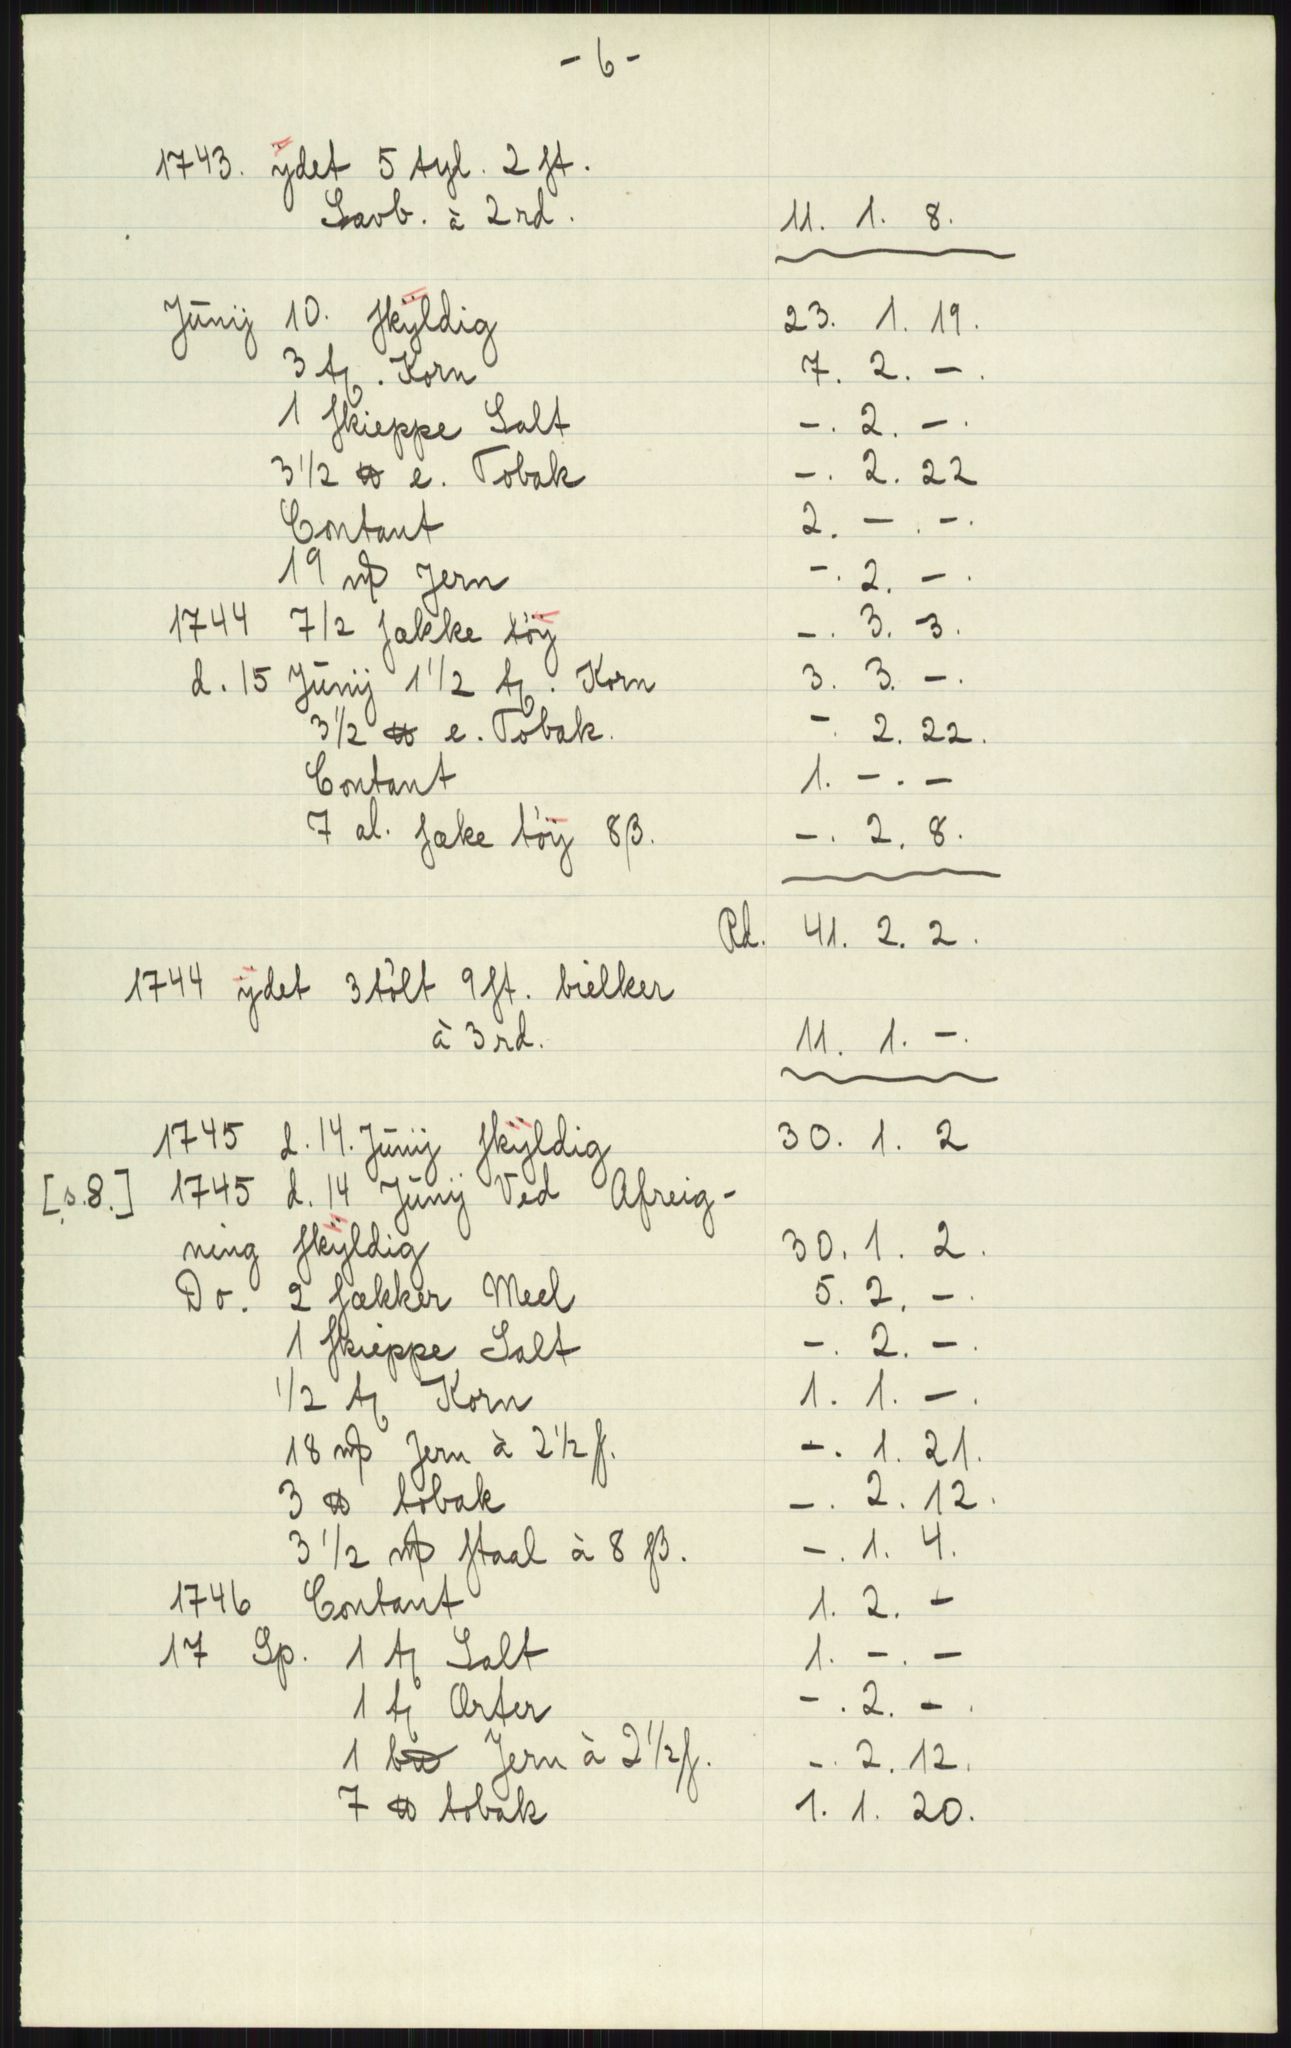 - 6 -
1743. ÿdet 5 tyl. 2 st.
Savb. à 2 rd. 11. 1. 8.
Jūnij 10. skÿldig 23. 1. 19.
3 tj. Korn 7. 2. -.
1 skieppe Salt -. 2. -.
3 1/2 ℔ e. Tobak -. 2. 22
Contant 2. -. -.
19 mp Jern -. 2. -.
1744 7/2 sække töÿ -. 3. 3.
d. 15 Jūnij 1 1/2 tj. Korn 3. 3. -.
3 1/2 ℔ e. Tobak. - 2. 22.
Contant 1. -. -
7 al. sæke töÿ 8 β. -. 2. 8.
Rd. 41. 2. 2.
1744 ÿdet 3 tölt 9 st. bielker
à 3 rd. 11. 1. -.
1745 d. 14. Jūnij skÿldig 30. 1. 2
[s. 8.] 1745 d. 14 Jūnij Ved Afreig-
ning skÿldig 30. 1. 2.
Do. 2 sækker Meel 5. 2. -.
1 skieppe Salt -. 2. -.
1/2 tj Korn 1. 1. -.
18 mp Jern à 2 1/2 s. -. 1. 21.
3 ℔ tobak -. 2. 12.
3 1/2 mp staal à 8 sβ. -. 1. 4.
1746 Contant 1. 2. -
17 Sp. 1 tj Salt 1. -. -
1 tj Ærter -. 2. -.
1 Jern à 2 1/2 s. -. 2. 12.
7 ℔ tobak 1. 1. 20.